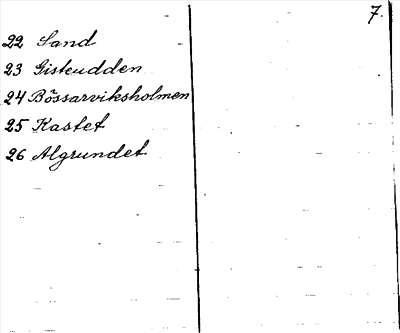 7.
22 Sand
23 Gisteudden
24 Bössarviksholmen
25 Kastet
26 Algrundet